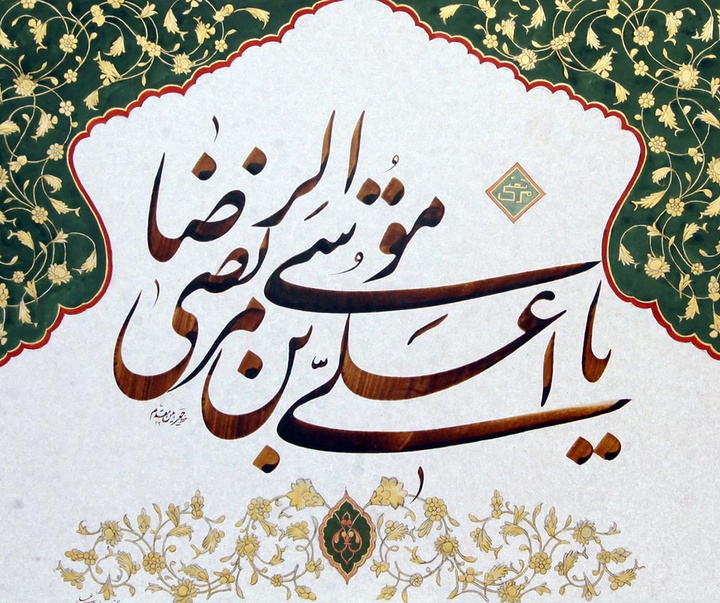 یا علی بن موسی الرضا المرتضی